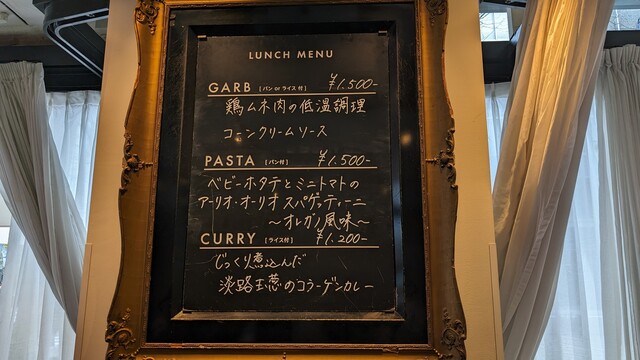 LUNCH MENU
GARB [パン or ライス付] ¥1.500-
鶏ムネ肉の低温調理
コーンクリームソース
PASTA [パン付] ¥1.500-
ベビーホタテとミニトマトの
アーリオ・オーリオ スパゲッティーニ
〜オレガノ風味〜
CURRY [ライス付] ¥1.200-
じっくり煮込んだ
淡路玉葱のコラーゲンカレー